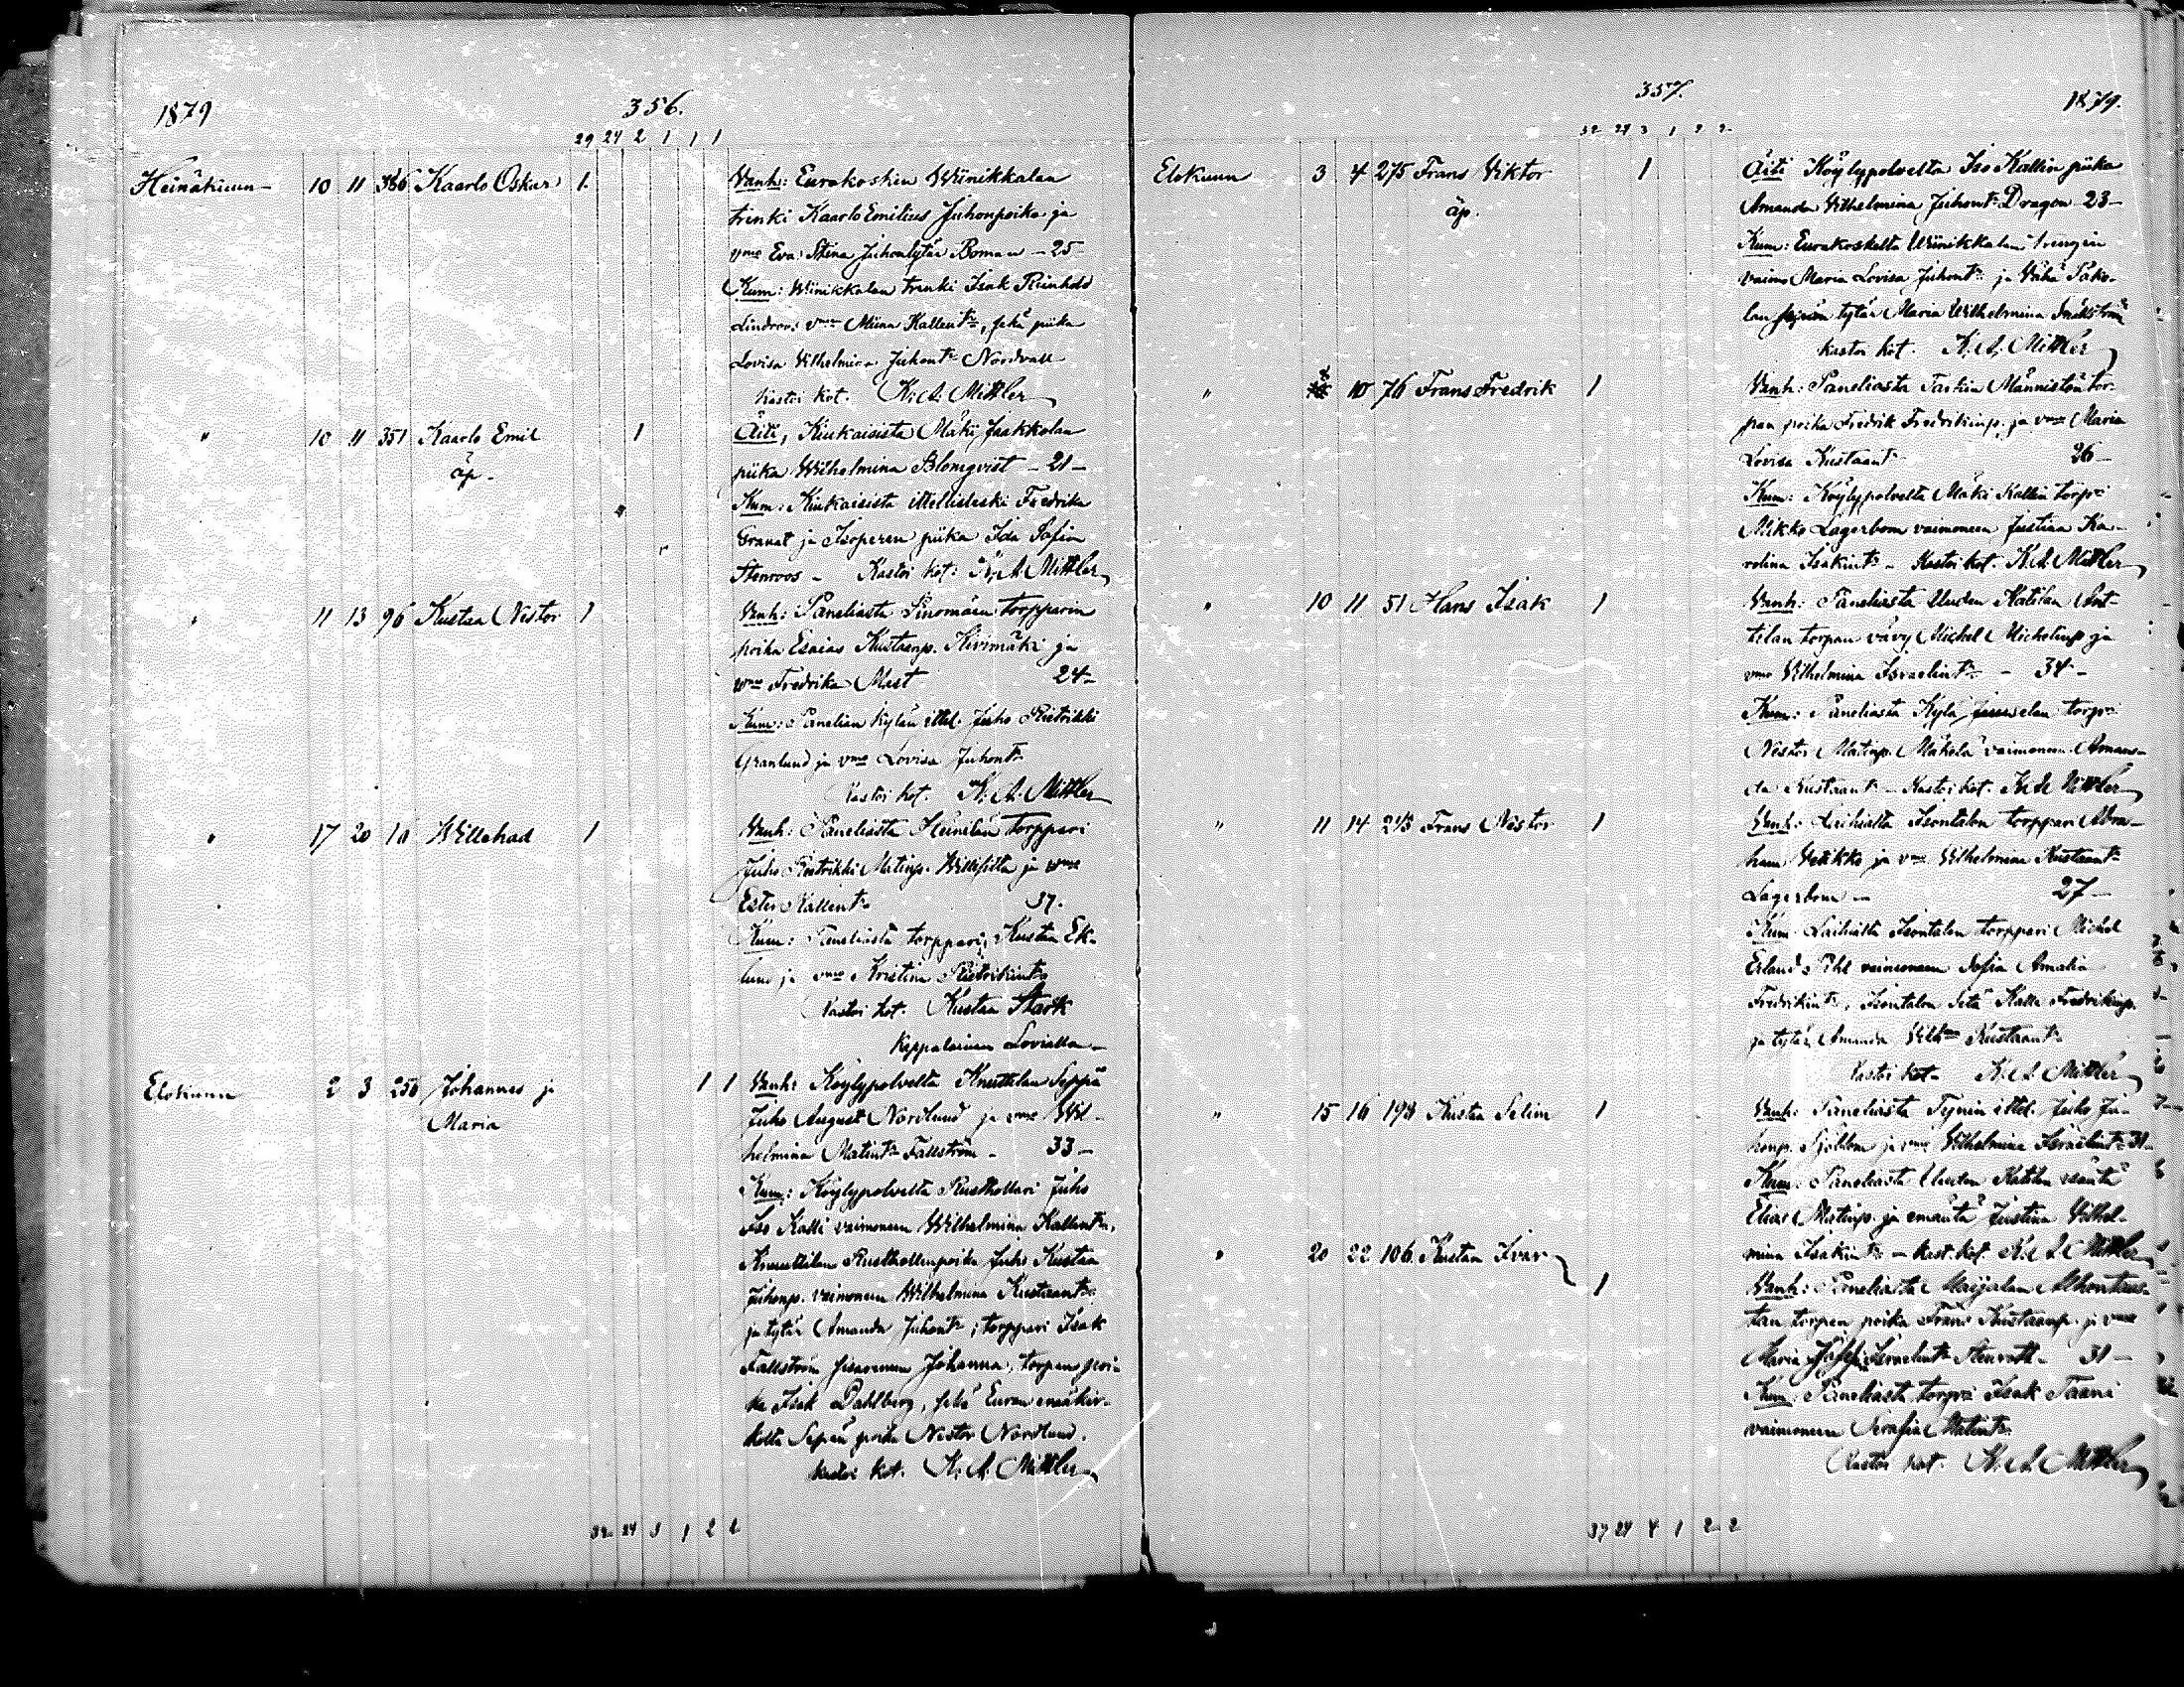 1879
356.
29 24 2 1 1 1
Heinäkuun 10 11 386 Kaarlo Oskar 1. Vanh: Eurakosken Wiinikkalan
trenki Kaarlo Emilius Juhonpoika ja
vmo Eva Stina Juhontytär Boman - 25
Kum: Wiinikkalan trenki Isak Reinhold
Lindroos vmo Miina Kallent:, sekä piika
Lovisa Vilhelmina Juhont: Nordvall
Kastoi kot. K. A. Mittler
" 10 11 351 Kaarlo Emil 1 Äiti, Kiukaisista Mäki Jaakkolan
äp. piika Wilhelmina Blomqvist - 21 -
Kum: Kiukaisista ittellisleski Fredrika
Granat ja piika Ida Sofia
Stenroos - Kastoi kot: K. A. Mittler
" 11 13 96 Kustaa Nestor 1 Vanh: Paneliasta Sinomäen torpparin
poika Esaias Kustaanp. Kivimäki ja
vmo Fredrika Mast 24 -
Kum: Panelian kylän ittel. Juho Rietrikki
Granlund ja vmo Lovisa Juhont:
Kastoi kot. K. A. Mittler
" 17 20 10 Willehad 1 Vanh: Paneliasta Heinilän torppari
Juho Rietrikki Matinp. ja vmo
Ester Kallent: 37.
Kum: Paneliasta torppari Kustaa Ek-
lund ja vmo Kristina Rietrikint:
Kastoi kot. Kustaa Stark
Kappalainen
Elokuun 2 3 250 Johannes ja 1 1 Vanh: Köylypolvelta Knuttilan Seppä
Maria Juho August Nordlund ja vmo Wil-
helmina Matint: Fallström - 33 -
Kum: Köylypolvelta Rusthollari Juho
Iso Kalli vaimoneen Wilhelmina Kallent:,
Knuuttilan Rusthollinpoika Juho Kustaa
Juhonp. vaimoneen Wilhelmina Kustaant:
ja tytär Amanda Juhont:; torppari Isak
Fallström sisarenen Johanna, torpan poi-
ka Isak Dahlberg, sekä Euran emäkir-
kolta Sepän poika Nestor Nordlund.
Kastoi kot. K. A. Mittler
32 24 3 1 2 2
357.
1879.
32 24 3 1 2 2
Elokuun 3 4 275 Frans Viktor 1 Äiti Köylypolvelta Iso Kallin piika
äp. Amanda Vilhelmina Juhont: Dragon 23 -
Kum: Eurakoskelta Wiinikkalan trengin
vaimo Maria Lovisa Juhont: ja Vähä Säko-
lan tytär Maria Wilhelmina
Kastoi kot. K. A. Mittler
" 10 76 Frans Fredrik 1 Vanh: Paneliasta Männistön tor-
pan poika Fredrik Fredrikinp. ja vmo Maria
Lovisa Kustaant: 26 -
Kum: Köylypolvelta Mäki Kallin torpri
Mikko Lagerbom vaimoneen Justina Ka-
rolina Isakint: - Kastoi kot. K. A. Mittler
" 10 11 51 Hans Isak 1 Vanh: Paneliasta Uuden Katilan Ant-
tilan torpan vävy Michel Michelinp. ja
vmo Vilhelmina Israelint: - 34 -
Kum: Paneliasta Kylä Juuselan torpri
Nestor Matinp. Mäkelä vaimoneen Aman-
da Kustaant: - Kastoi kot. K. A. Mittler
" 11 14 243 Frans Nestor 1 Vanh: Laihialta Isontalon torppari Abra-
ham ja vmo Vilhelmina Kustaant:
Lagerbom - 27 -
Kum: Laihialta Isontalon torppari Michel
Erland Pihl vaimoneen Sofia Amalia
Fredrikint:, Isontalon Setä Kalle Fredrikinp.
ja tytär Amanda Vilhmna Kustaant:
Kastoi kot. K. A. Mittler
" 15 16 198 Kustaa Selim 1 Vanh: Paneliasta ittel. Juho Ju-
honp. Sjöblom ja vmo Vilhelmina Israelint: 31 -
Kum: Paneliasta Uuden Katilan isäntä
Elias Matinp. ja emäntä Justina Vilhel-
mina Isakint: - kast. kot. K. A. Mittler
" 20 22 106 Kustaa Ivar 1 Vanh: Paneliasta Maijalan
torpan poika Frans Kustaanp. ja vmo
Maria Israelint: Stenroth - 31 -
Kum: Paneliasta torpri Isak Taani
vaimoneen Serafia Matint:
Kastoi kot. K. A. Mittler
37 24 4 1 2 2